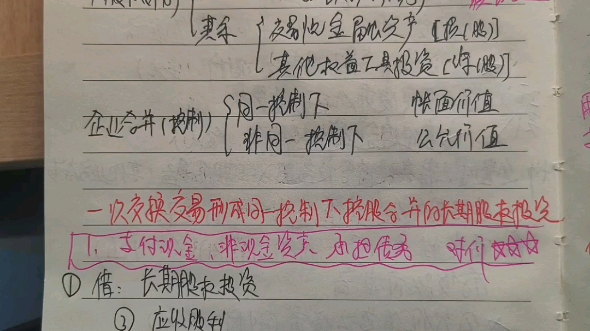 其余 交易性金融资产 [损(股)]
其他权益工具投资 [综(股)]
企业合并(控制) 同一控制下 帐面价值
非同一控制下 公允价值
一次交换交易形成同一控制下控股合并的长期股权投资
1. 支付现金、非现金资产、承担债务 对价 ☆☆☆
① 借: 长期股权投资
③ 应收股利